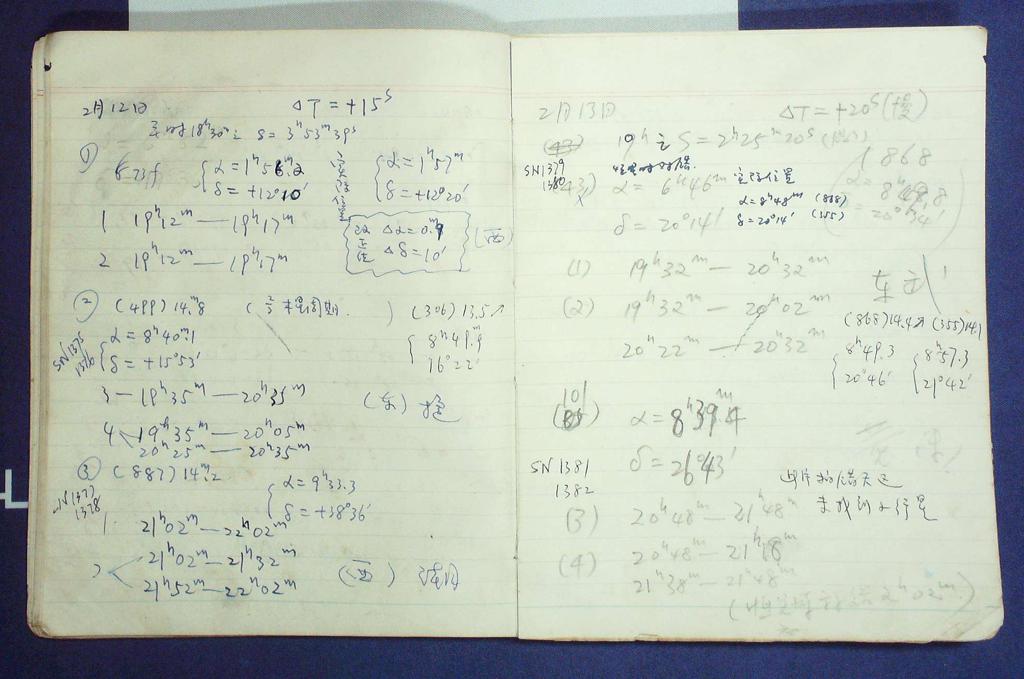 2月12日 ΔT = +15ˢ
18ʰ30ᵐ之 S = 3ʰ53ᵐ39ˢ
①
α = 1ʰ56.2
δ = +12°10′
实际位置
α = 1ʰ57ᵐ
δ = +12°20′
1 19ʰ12ᵐ — 19ʰ17ᵐ
改正值 Δα = 0.ᵐ9
Δδ = 10′
(西)
2 19ʰ12ᵐ — 19ʰ17ᵐ
② (499) 14.ᵐ8 (2/3 周期 ) (306) 13.5↗
SN1375
1376
α = 8ʰ40ᵐ.1
δ = +15°53′
8ʰ49.ᵐ9
16°22′
3 — 19ʰ35ᵐ — 20ʰ35ᵐ
(东)
4 19ʰ35ᵐ — 20ʰ05ᵐ
20ʰ25ᵐ — 20ʰ35ᵐ
③ (887) 14.ᵐ2
SN1377
1378
α = 9ʰ33.3
δ = +38°36′
1. 21ʰ02ᵐ — 22ʰ02ᵐ
2 21ʰ02ᵐ — 21ʰ32ᵐ
21ʰ52ᵐ — 22ʰ02ᵐ
(西)
2月13日 ΔT = +20ˢ (慢)
19ʰ之 S = 2ʰ25ᵐ20ˢ
SN1379
1380
α = 6ʰ46ᵐ
δ = 20°14′
实际位置
α = 8ʰ48ᵐ (868)
δ = 20°14′ (355)
868
α = 8ʰ49.8
(1) 19ʰ32ᵐ — 20ʰ32ᵐ
(2) 19ʰ32ᵐ — 20ʰ02ᵐ
20ʰ22ᵐ — 20ʰ32ᵐ
(868) 14.4↗ (355) 14.1
8ʰ49.3
20°46′
8ʰ57.3
21°42′
α = 8ʰ39ᵐ.4
δ = 26°43′
SN1381
1382
未找到小行星
(3) 20ʰ48ᵐ — 21ʰ48ᵐ
(4) 20ʰ48ᵐ — 21ʰ18ᵐ
21ʰ38ᵐ — 21ʰ48ᵐ